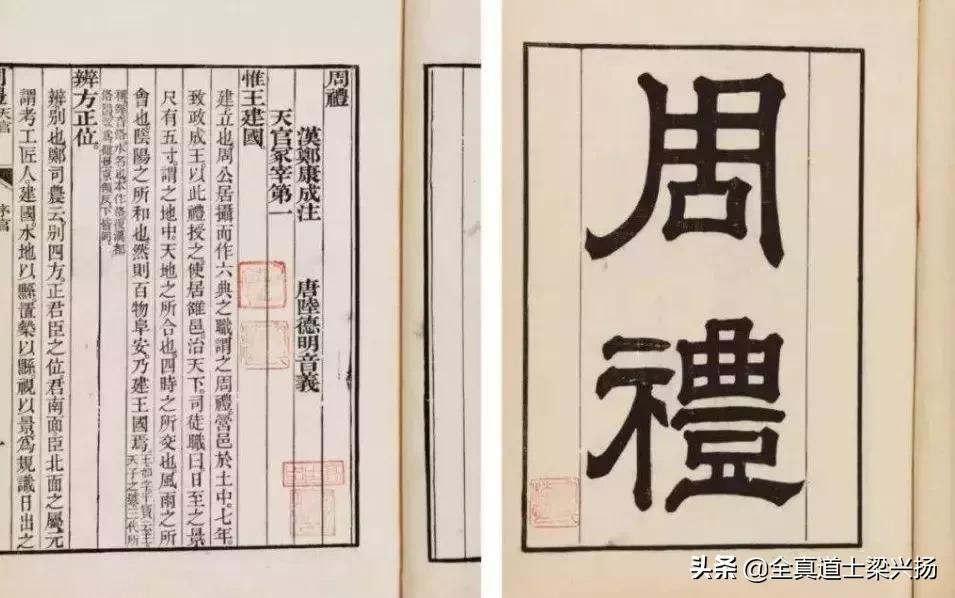 周禮
漢鄭康成注 唐陸德明音義
天官冢宰第一
惟王建國
建立也。周公居攝而作六典之職。謂之周禮。營邑於土中。七年。
致政成王。以此禮授之。使居雒邑。治天下。司徒職曰。日至之景
尺有五寸。謂之地中。天地之所合也。四時之所交也。風雨之所
會也。陰陽之所和也。然則百物阜安。乃建王國焉。
辨方正位。
辨別也。鄭司農云。別四方。正君臣之位。君南面臣北面之屬。元
謂考工匠人建國。水地以縣。置槷以縣。視以景。爲規識日出之
天官
序官
周禮
头条 @全真道士梁兴扬